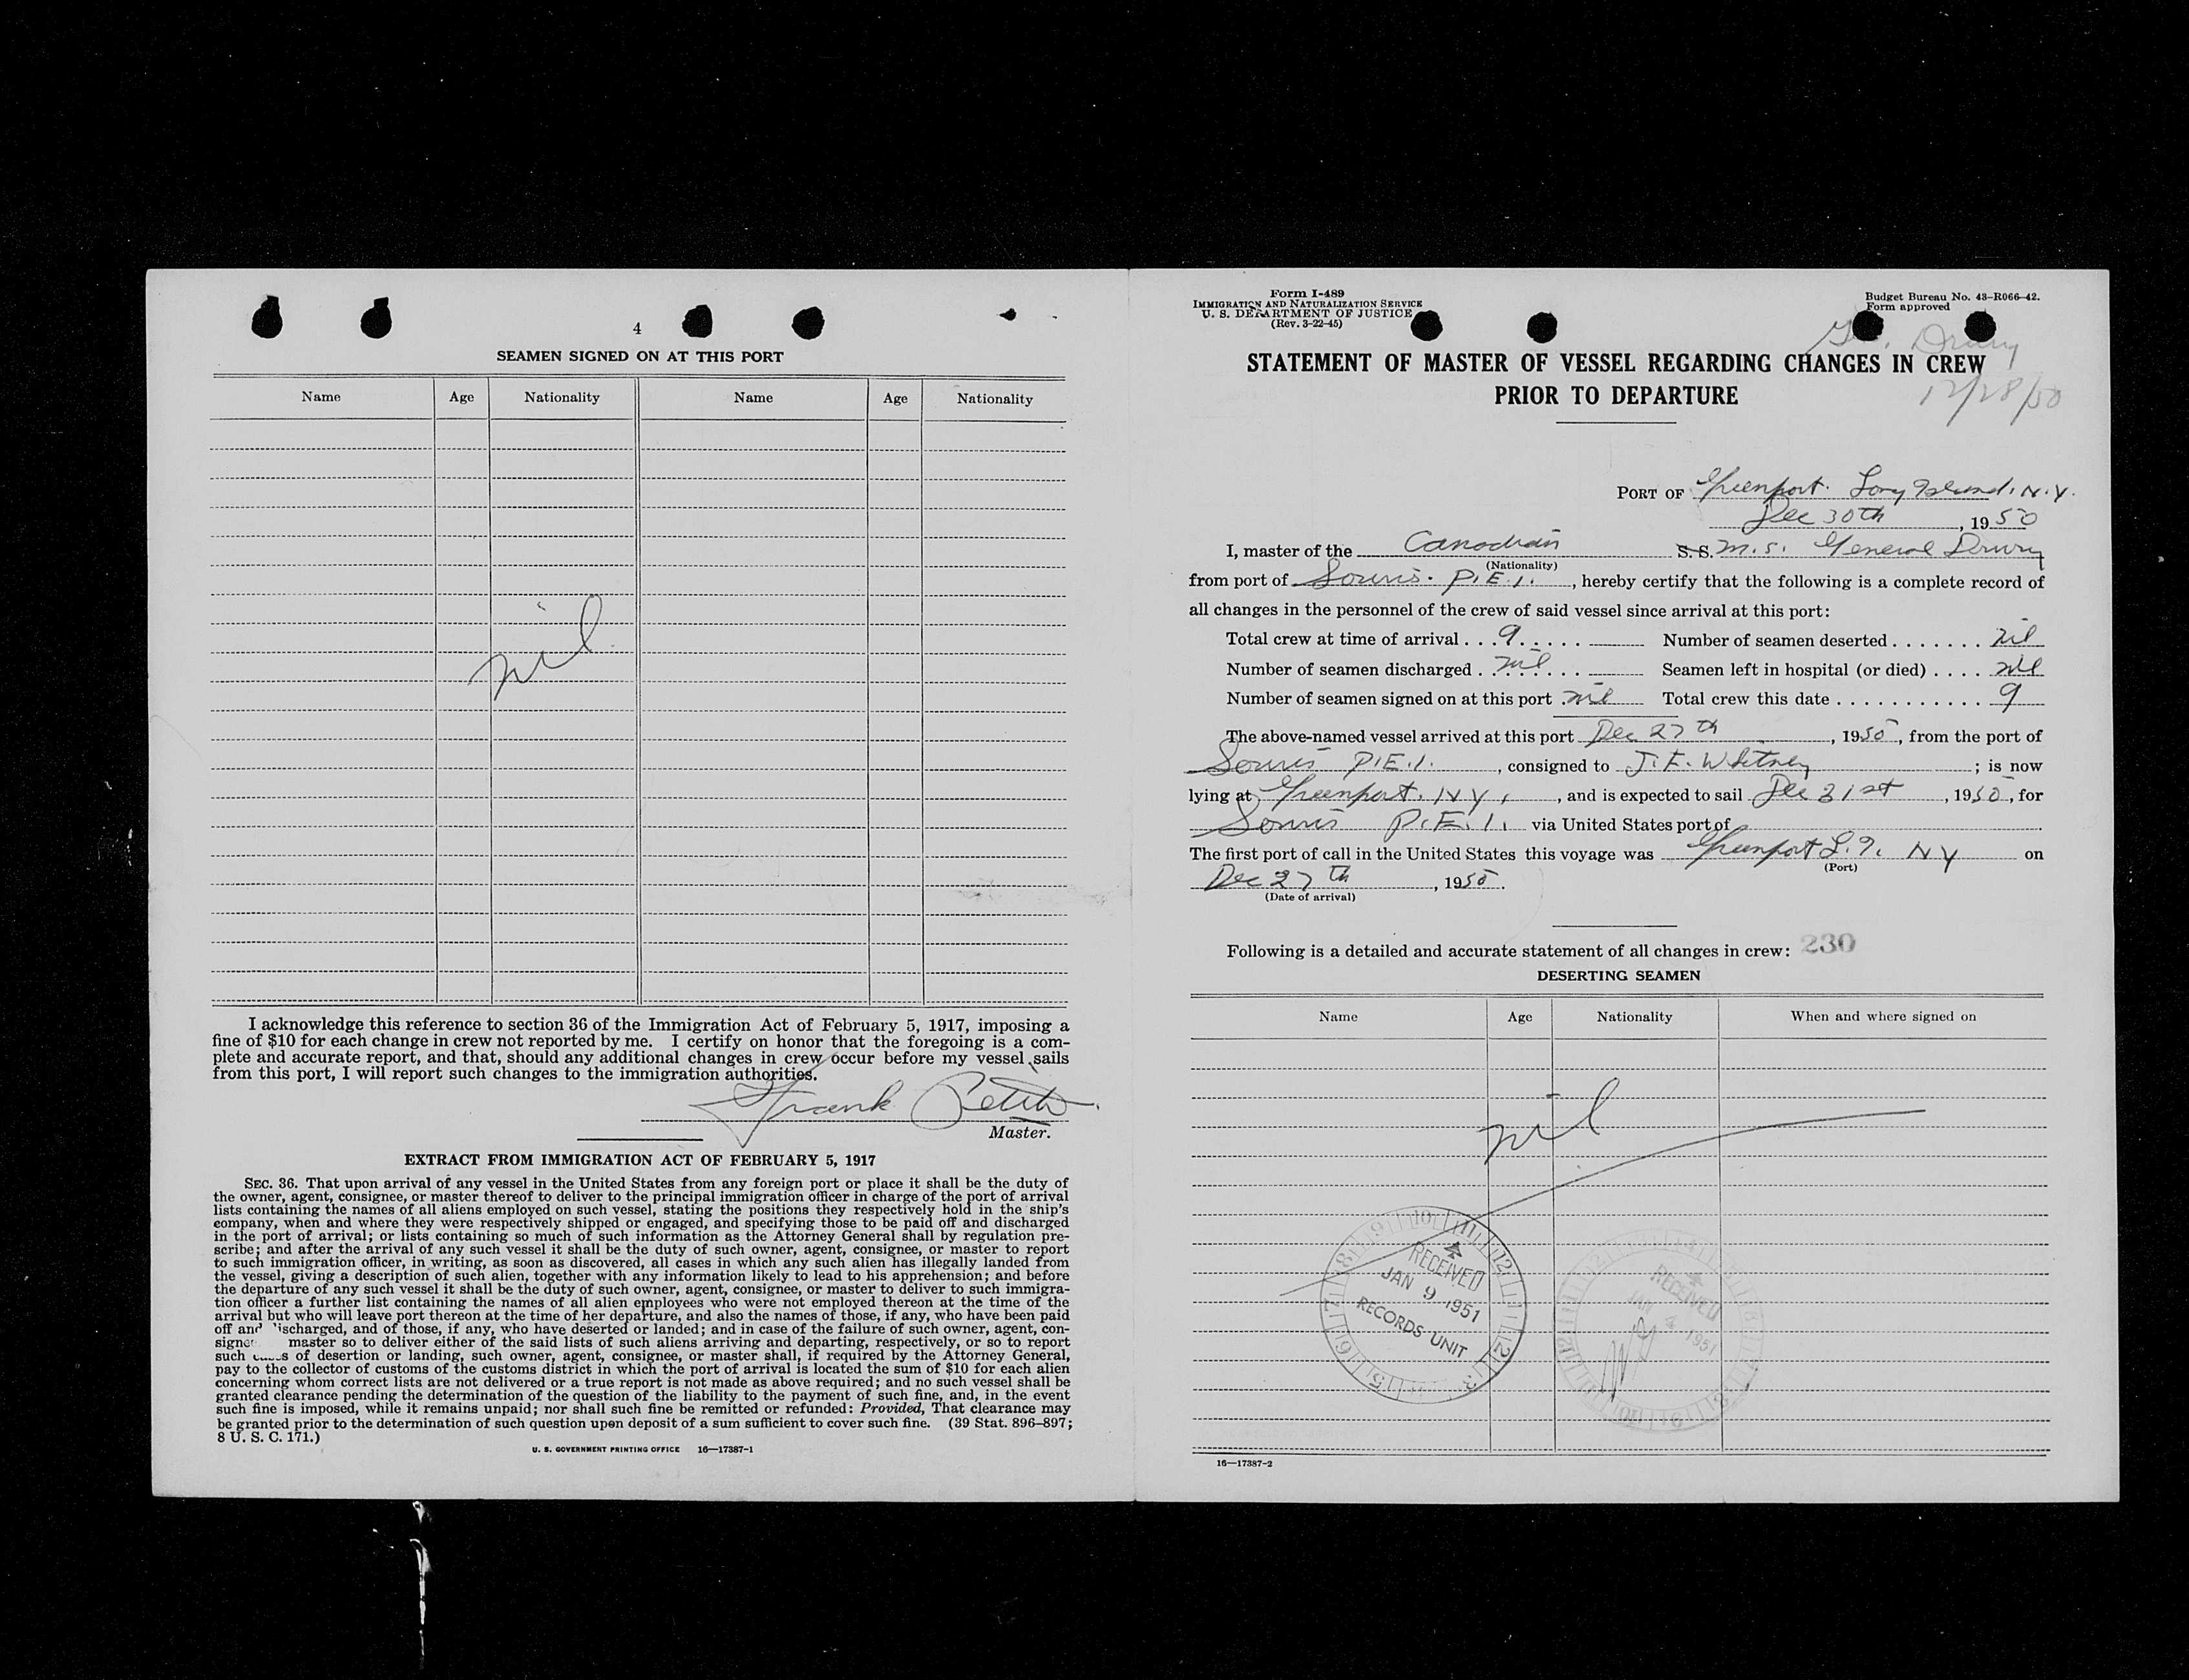 4
SEAMEN SIGNED ON AT THIS PORT
Name Age Nationality Name Age Nationality
nil
I acknowledge this reference to section 36 of the Immigration Act of February 5, 1917, imposing a
fine of $10 for each change in crew not reported by me. I certify on honor that the foregoing is a com-
plete and accurate report, and that, should any additional changes in crew occur before my vessel sails
from this port, I will report such changes to the immigration authorities.
Frank
Master.
EXTRACT FROM IMMIGRATION ACT OF FEBRUARY 5, 1917
SEC. 36. That upon arrival of any vessel in the United States from any foreign port or place it shall be the duty of
the owner, agent, consignee, or master thereof to deliver to the principal immigration officer in charge of the port of arrival
lists containing the names of all aliens employed on such vessel, stating the positions they respectively hold in the ship's
company, when and where they were respectively shipped or engaged, and specifying those to be paid off and discharged
in the port of arrival; or lists containing so much of such information as the Attorney General shall by regulation pre-
scribe; and after the arrival of any such vessel it shall be the duty of such owner, agent, consignee, or master to report
to such immigration officer, in writing, as soon as discovered, all cases in which any such alien has illegally landed from
the vessel, giving a description of such alien, together with any information likely to lead to his apprehension; and before
the departure of any such vessel it shall be the duty of such owner, agent, consignee, or master to deliver to such immigra-
tion officer a further list containing the names of all alien employees who were not employed thereon at the time of the
arrival but who will leave port thereon at the time of her departure, and also the names of those, if any, who have been paid
off and discharged, and of those, if any, who have deserted or landed; and in case of the failure of such owner, agent, con-
signee master so to deliver either of the said lists of such aliens arriving and departing, respectively, or so to report
such cases of desertion or landing, such owner, agent, consignee, or master shall, if required by the Attorney General,
pay to the collector of customs of the customs district in which the port of arrival is located the sum of $10 for each alien
concerning whom correct lists are not delivered or a true report is not made as above required; and no such vessel shall be
granted clearance pending the determination of the question of the liability to the payment of such fine, and, in the event
such fine is imposed, while it remains unpaid; nor shall such fine be remitted or refunded: Provided, That clearance may
be granted prior to the determination of such question upon deposit of a sum sufficient to cover such fine. (39 Stat. 896–897;
8 U. S. C. 171.)
U. S. GOVERNMENT PRINTING OFFICE 16—17387-1
Form I-489
IMMIGRATION AND NATURALIZATION SERVICE
U. S. DEPARTMENT OF JUSTICE
(Rev. 3-22-45)
Budget Bureau No. 43-R066-42.
Form approved
Drury
12/28/50
STATEMENT OF MASTER OF VESSEL REGARDING CHANGES IN CREW
PRIOR TO DEPARTURE
PORT OF Greenport. Long Island. N.Y.
Dec 30th, 1950
I, master of the Canadian S. S. M.S. General Drury
(Nationality)
from port of Souris. P.E.I., hereby certify that the following is a complete record of
all changes in the personnel of the crew of said vessel since arrival at this port:
Total crew at time of arrival . . . 9 . . . . . Number of seamen deserted . . . . . . . nil
Number of seamen discharged . nil . . . . Seamen left in hospital (or died) . . . . nil
Number of seamen signed on at this port . nil Total crew this date . . . . . . . . . . . 9
The above-named vessel arrived at this port Dec 27th, 1950, from the port of
Souris P.E.I., consigned to J. E. Whitney; is now
lying at Greenport. N.Y., and is expected to sail Dec 31st, 1950, for
Souris P.E.I. via United States port of
The first port of call in the United States this voyage was Greenport L.I. NY on
(Port)
Dec 27th, 1950.
(Date of arrival)
Following is a detailed and accurate statement of all changes in crew: 230
DESERTING SEAMEN
Name Age Nationality When and where signed on
nil
RECEIVED
JAN 9 1951
RECORDS UNIT
RECEIVED
JAN 4 1951
16—17387-2